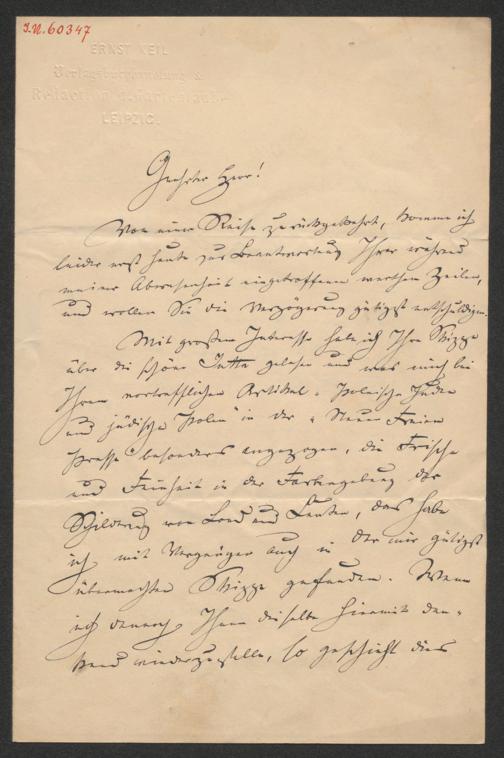 I.N. 60347
ERNST KEIL
Verlagsbuchhandlung &
Redaction d. Gartenlaube
LEIPZIG.
Geehrter Herr!
Von einer Reise zurückgekehrt, komme ich
leider erst heute zur Beantwortung Ihrer während
meiner Abwesenheit eingetroffenen werthen Zeilen,
und wollen Sie die Verzögerung gütigst entschuldigen.
Mit großem Interesse habe ich Ihre Skizze
über die schöne Jutta gelesen und was mich bei
Ihrem vortrefflichen Artikel „Polnische Juden
und jüdische Polen" in der „Neuen Freien
Presse" besonders angezogen, die Frische
und Feinheit in der Farbengebung der
Schilderung von Land und Leuten, das habe
ich mit Vergnügen auch in der mir gütigst
übermachten Skizze gefunden. Wenn
ich dennoch Ihnen dieselbe hiermit dan-
kend wiederzustelle, so geschieht dies